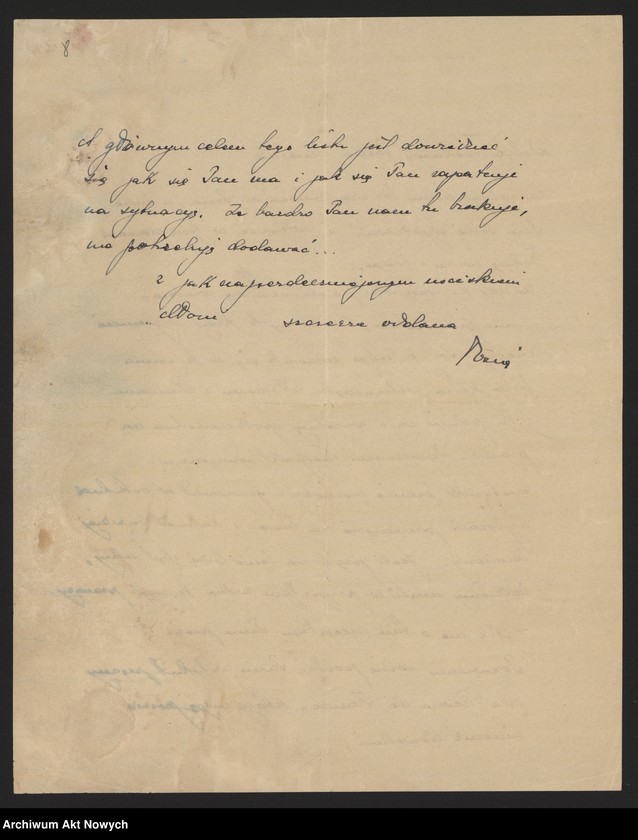 8
A głównym celem tego listu jest dowiedzieć
się jak się Pan ma i jak się Pan zapatruje
na sytuację. Że bardzo Pan nam tu brakuje,
nie potrzebuję dodawać...
z jak najserdeczniejszym uściskiem
dłoni szczerze oddana
Archiwum Akt Nowych